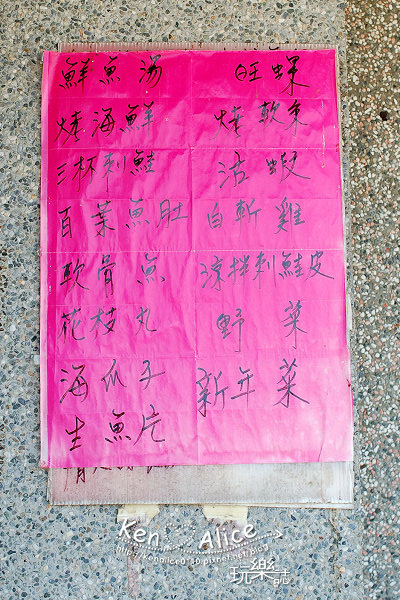 鮮魚湯
烤海鮮
三杯刺鮭
百葉魚肚
軟骨魚
花枝丸
海爪子
生魚片
旺螺
燒軟魚
活蝦
白斬雞
涼拌刺鮭皮
野菜
新年菜
Ken Alice
玩樂誌